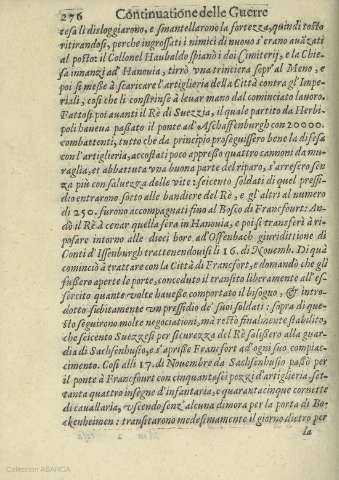 276 Continuatione delle Guerre
tesa li disloggiarono, e smantellarono la fortezza, quindi tosto
ritirandosi, perche ingrossati i nimici di nuovo s'erano auāzati
al posto: il Collonel Haubaldo spianò doi Cimiterij, e la Chie-
sa innanzi ad Hanouia, tirrò vna trintiera sopr'al Meno, e
poi se messe à scaricare l'artiglieria della Città contra gl'Impe-
riali, così che li constrinse à leuar mano dal cominciato lauoro.
Fattosi poi auanti il Rè di Suezzia, il quale partito da Herbi-
poli haueua passato il ponte ad Aschaffenburgh con 20000.
combattenti, tutto che da principio proseguissero bene la difesa
con l'artiglieria, accostati poco appresso quattro cannoni da mu-
raglia, et abbattuta vna buona parte del riparo, s'arresero sen
za più con saluezza delle vite: seicento soldati di quel pressi-
dio entrarono sotto alle bandiere del Rè, e gl'altri al numero
di 250. furono accompagnati fino al Bosco di Francfourt: An-
dò il Rè à cenar quella sera in Hanouia, e poi si transferà à ri-
posare intorno alle dieci hore ad Offenbach giuriditione di
Conti d'Issenburgh trattenendouisi li 16. di Nouemb. Di quà
cominciò a trattare con la Città di Francfort, e domandò che gli
fussero aperte le porte, conceduto il transito liberamente all'es-
sercito quante volte hauesse comportato il bisogno, & intro-
dotto subitamente vn pressidio de' suoi soldati: sopra di que-
sto seguirono molte negociationi, mà restò finalmente stabilito,
che seicento Suezzesi per sicurezza del Rè salissero alla guar-
dia di Sachsenhusio, e s'aprisse Francfort ad ogni suo compia-
cimento. Così alli 17. di Nouembre da Sachsenhusio passò per
il ponte à Francfourt con cinquantasei pezzi d'artiglieria, set-
tanta quattro insegne d'infantaria, e quarantacinque cornette
di cauallaria, vscendo senz'alcuna dimora per la porta di Bo-
ckenheimen: transitarono medesimamente il giorno dietro per
la
Colección ABANCA